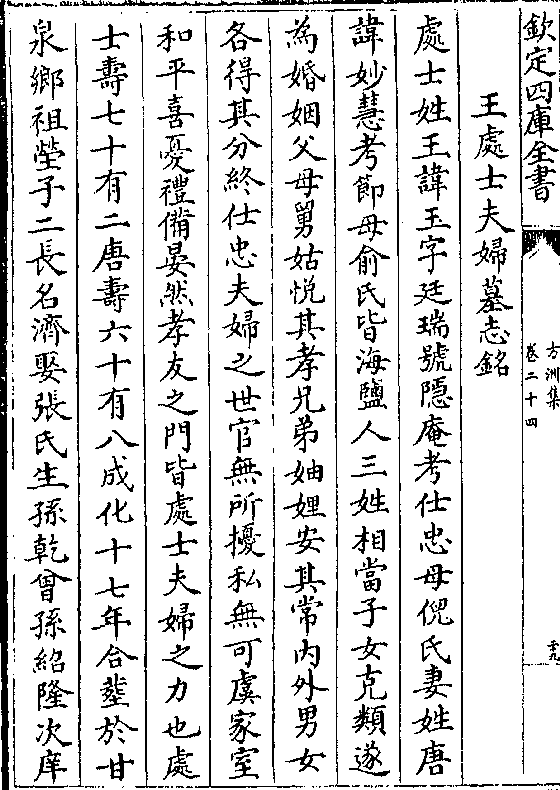 欽定四庫全書
方洲集
卷二十四
王處士夫婦墓志銘
處士姓王諱玉字廷瑞號隱庵考仕忠母倪氏妻姓唐
諱妙慧考節母俞氏皆海鹽人三姓相當子女克類遂
為婚姻父母舅姑悦其孝兄弟妯娌安其常内外男女
各得其分終仕忠夫婦之世官無所擾私無可虞家室
和平喜憂禮備晏然孝友之門皆處士夫婦之力也處
士壽七十有二唐壽六十有八成化十七年合塟於甘
泉鄉祖塋子二長名濟娶張氏生孫乾曾孫紹隆次庠